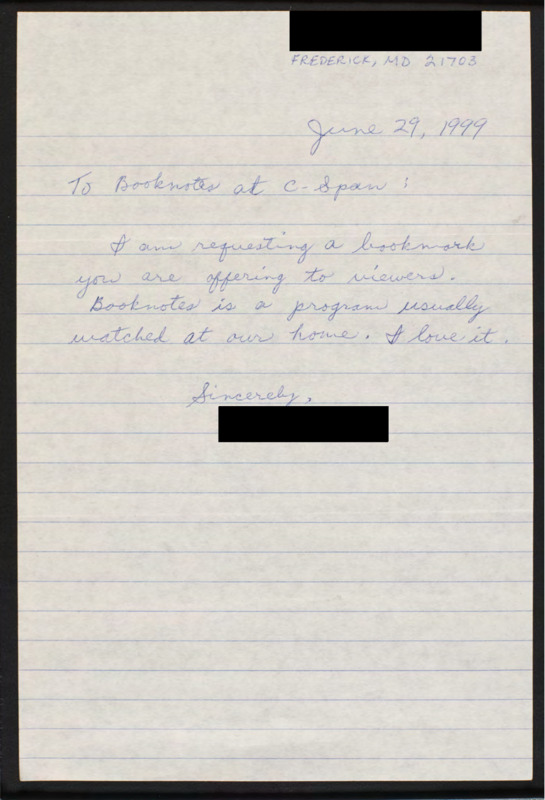 FREDERICK, MD 21703
June 29, 1999
To Booknotes at C-Span :
I am requesting a bookmark
you are offering to viewers.
Booknotes is a program usually
watched at our home. I love it.
Sincerely,